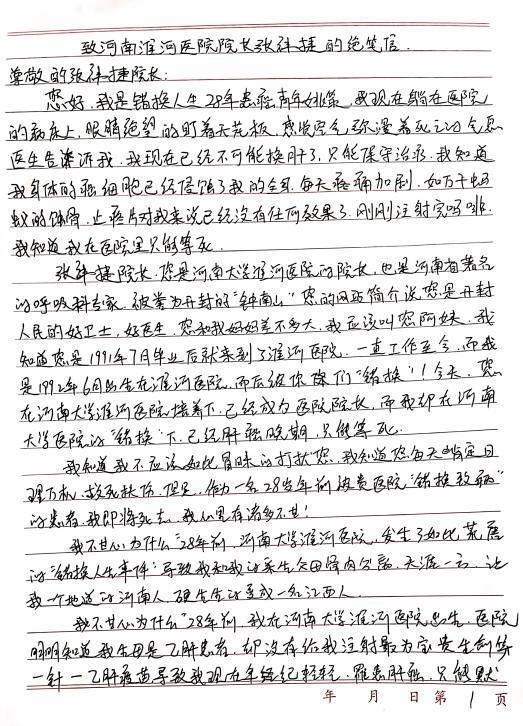 致河南淮河医院院长张祎捷的绝笔信.
尊敬的张祎捷院长:
您好,我是错换人生28年患癌青年姚策,我现在躺在医院
的病床上,眼睛绝望的盯着天花板,感觉空气弥漫着死亡的气息
医生告诉我,我现在已经不可能换肝了,只能保守治疗,我知道
我身体的癌细胞已经侵蚀了我的全身,每天疼痛加剧,如万千蚂
蚁的蚀骨,止疼片对我来说已经没有任何效果了,刚刚注射完吗啡,
我知道我在医院里只能等死。
张祎捷院长,您是河南大学淮河医院的院长,也是河南省著名
的呼吸科专家,被誉为开封的"钟南山",您的网站简介说您是开封
人民的好卫士,好医生,您和我妈妈差不多大,我应该叫您阿姨,我
知道您是1991年7月毕业后就来到了淮河医院,一直工作至今,而我
是1992年6月出生在淮河医院,而后被你院们"错换"!今天,您
在河南大学淮河医院培养下,已经成为医院院长,而我却在河南
大学医院的"错换"下,已经肝癌晚期,只能等死
我知道我不应该如此冒昧的打扰您,我知道您每天肯定日
理万机,救死扶伤,但是,作为一名28岁年前被贵医院"错换致癌"
的患者,我即将死去,我心里有诸多不甘!
我不甘心,为什么"28年前,河南大学淮河医院,发生了如此荒唐
的"错换人生事件"导致我和我的亲生父母骨肉分离,天涯一方,让
我一个地道的河南人,硬生生的变成一名江西人.
我不甘心,为什么"28年前,我在河南大学淮河医院出生,医院
明明知道我生母是乙肝患者,却没有给我注射最为宝贵生命第
一针一乙肝疫苗导致我现在年轻纪轻轻,罹患肝癌,只能默
年 月 日 第 1 页